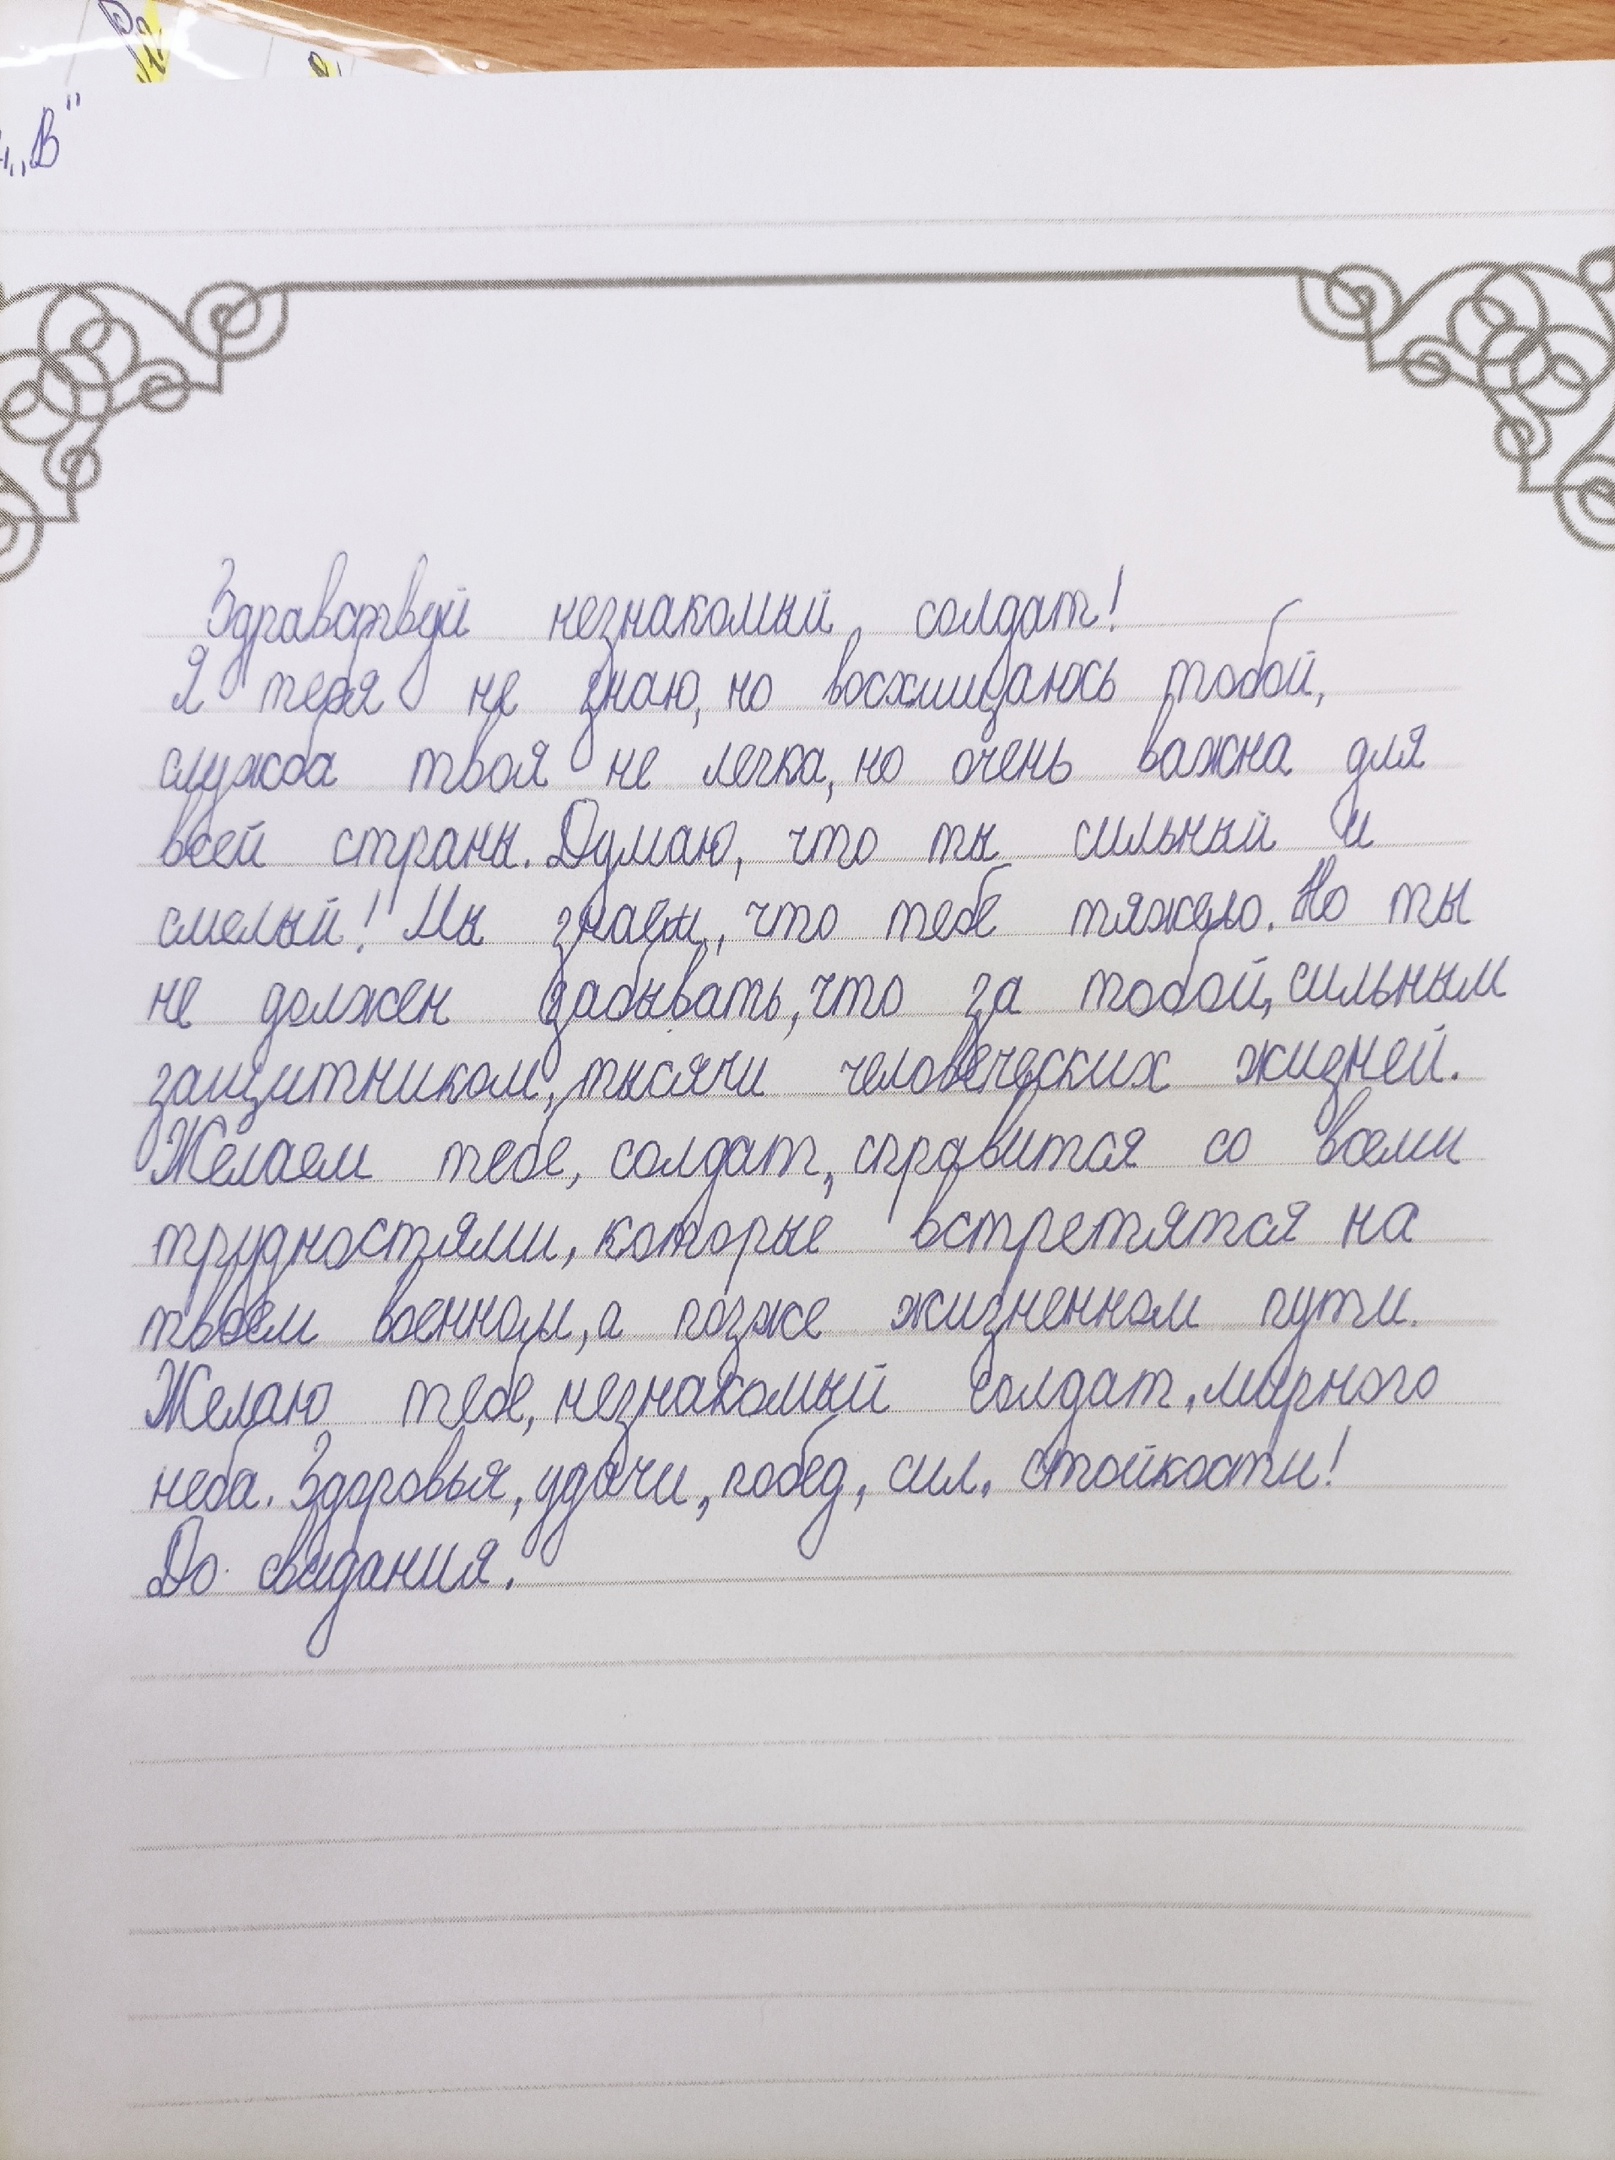 „В"
Здравствуй незнакомый солдат!
Я тебя не знаю, но восхищаюсь тобой,
служба твоя не легка, но очень важна для
всей страны. Думаю, что ты сильный и
смелый! Мы знаем, что тебе тяжело. Но ты
не должен забывать, что за тобой, сильным
защитником, тысячи человеческих жизней.
Желаем тебе, солдат, справится со всеми
трудностями, которые встретятся на
твоем военном, а позже жизненном пути.
Желаю тебе, незнакомый солдат, мирного
неба. Здоровья, удачи, побед, сил, стойкости!
До свидания.